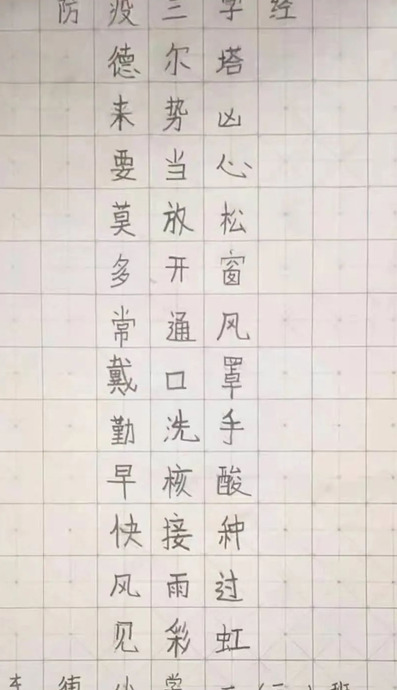 防疫三字经
德尔塔
来势凶
要当心
莫放松
多开窗
常通风
戴口罩
勤洗手
早核酸
快接种
风雨过
见彩虹
小学二(二)班